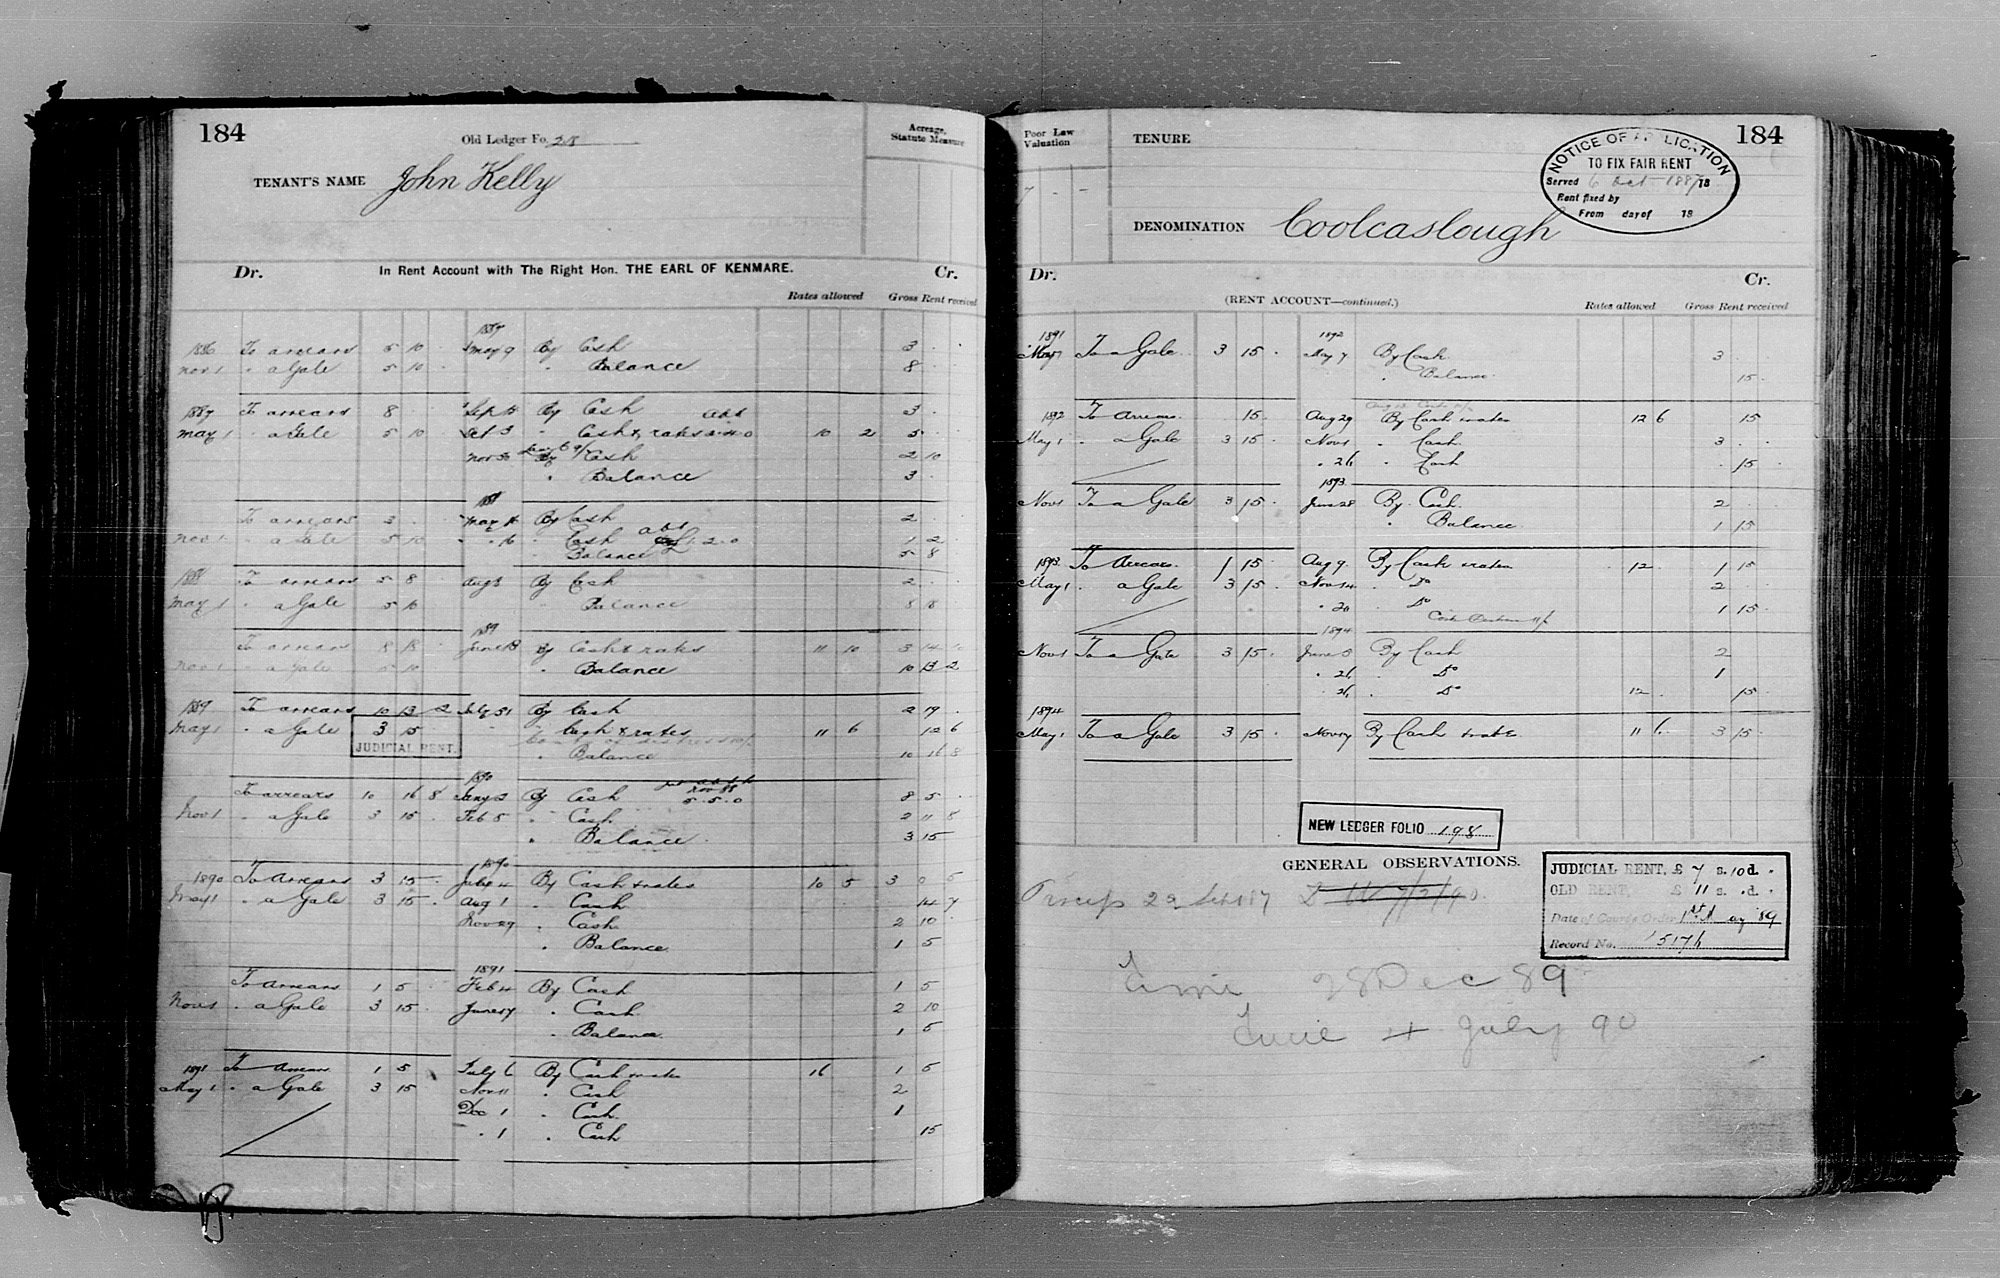 184
Old Ledger Fo. 28
Acreage, Statute Measure
TENANT'S NAME John Kelly
Dr. In Rent Account with The Right Hon. THE EARL OF KENMARE. Cr.
Rates allowed Gross Rent received
1887
1886 To arrears 5 10 . May 9 By Cash 3 . .
Nov 1 " a Gale 5 10 . " Balance 8 . .
1887 To arrears 8 . . Sept By Cash abt 3 .
May 1 " a Gale 5 10 Oct 3 " Cash & rates 10 2 5 . .
Nov 30 By Cash 2 10
" Balance 3 .
To arrears 3 . . May 14 By Cash 2 . .
Nov 1 " a Gale 5 10 " 16 " Cash abt 1 . 2 . 0 1 2
" Balance 5 8
1888 To arrears 5 8 Aug 8 By Cash 2 . .
May 1 " a Gale 5 10 " Balance 8 18
1889
To arrears 8 18 June 13 By Cash & rates 11 10 3 14 10
Nov 1 " a Gale 5 10 " Balance 10 13 2
1889 To arrears 10 13 2 July 31 By Cash 2 19 .
May 1 " a Gale 3 15 " Cash & rates 11 6 12 6
JUDICIAL RENT.
" Balance 10 16 8
1890
To arrears 10 16 8 Jany 3 By Cash 5 . 5 . 0 8 5 . .
Nov 1 " a Gale 3 15 . Feb 5 " Cash 2 11 8
" Balance 3 15
1890
1890 To Arrears 3 15 July 4 By Cash & rates 10 5 3 0 5
May 1 . a Gale 3 15 . Aug 1 . Cash 14 7
Nov 29 . Cash 2 10
. Balance 1 5
1891
To Arrears 1 5 . Feb 4 By Cash 1 5
Nov 1 . a Gale 3 15 . June 17 . Cash 2 10
. Balance 1 5
1891 To Arrears 1 5 July 6 By Cash & rates 16 1 5
May 1 . a Gale 3 15 Nov 11 . Cash 2
Dec 1 . Cash 1
. 1 . Cash 15
Poor Law Valuation
TENURE
184
7 - -
NOTICE OF APPLICATION
TO FIX FAIR RENT
Served 6 Oct 1887 18
Rent fixed by
From day of 18
DENOMINATION Coolcaslough
Dr. Cr.
(RENT ACCOUNT—continued.) Rates allowed Gross Rent received
1891 1892
Nov 1 To a Gale 3 15 . May 7 By Cash 3 .
. Balance 15 .
1892 To Arrears 15 . Aug 29 By Cash & rates 12 6 15
May 1 . a Gale 3 15 . Nov 1 . Cash 3 . .
. 26 . Cash . 15 .
1893
Nov 1 To a Gale 3 15 . June 28 By Cash 2 .
. Balance 1 15
1893 To Arrears 1 15 Aug 9 By Cash & rates 12 . 1 15
May 1 . a Gale 3 15 . Nov 14 . Do 2
. 20 . Do 1 15 .
1894
Nov 1 To a Gale 3 15 . June 5 By Cash 2
. 26 . Do 1
. 26 . Do 12 . 15
1894
May 1 To a Gale 3 15 . Nov 17 By Cash & rates 11 6 3 15 .
NEW LEDGER FOLIO 198
GENERAL OBSERVATIONS.
JUDICIAL RENT, £ 7 s. 10 d. .
OLD RENT, £ 11 s. . d. .
Date of Courts Order 1st May '89
Record No. 5176
22 Sept 87
28 Dec 89
4 July 90